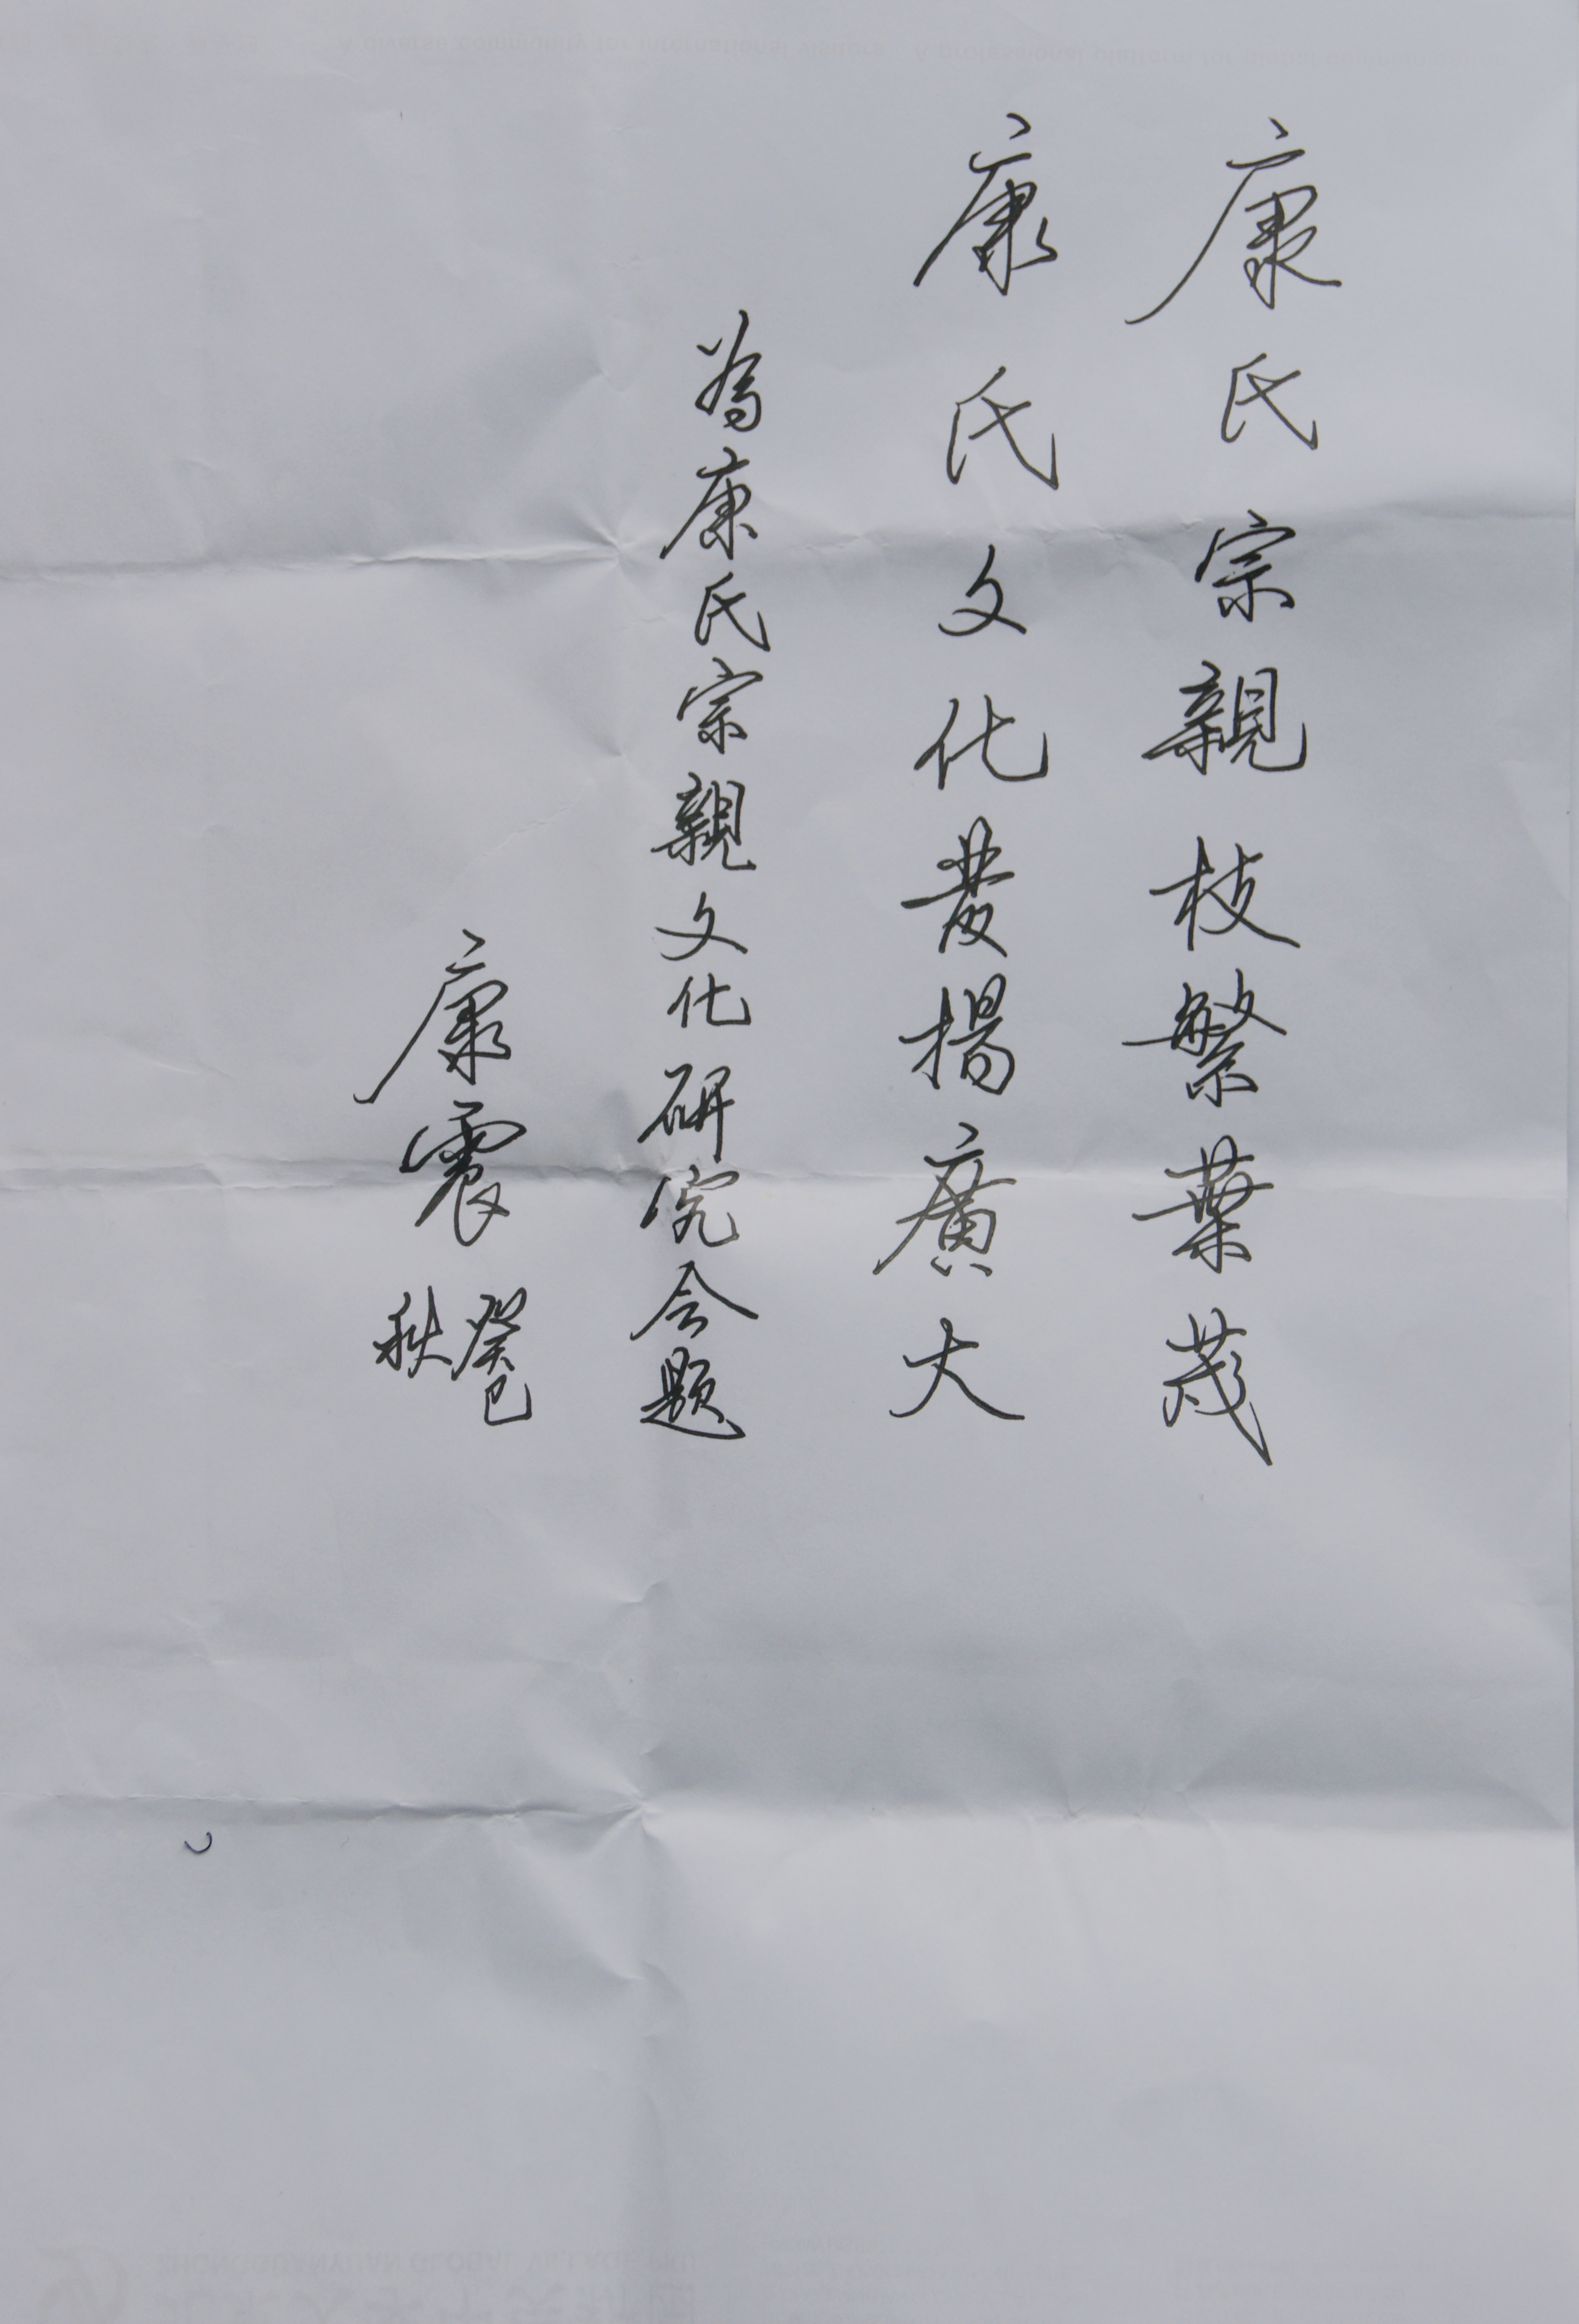 康氏宗親枝繁葉茂
康氏文化發揚廣大
為康氏宗親文化研究会题
康震
癸巳
秋